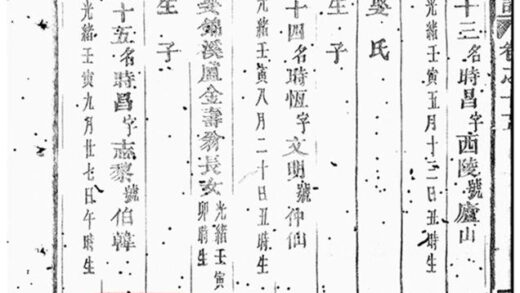 十三名時昌字西陵號廬山
光緒壬寅五月十三日丑時生
娶氏
生子
十四名時恆字文明號仲仙
光緒壬寅八月二十日丑時生
娶錦溪盧金壽翁長女光緒壬寅
卯時生
生子
十五名時昌字志黎號伯韓
光緒壬寅九月廿七日午時生